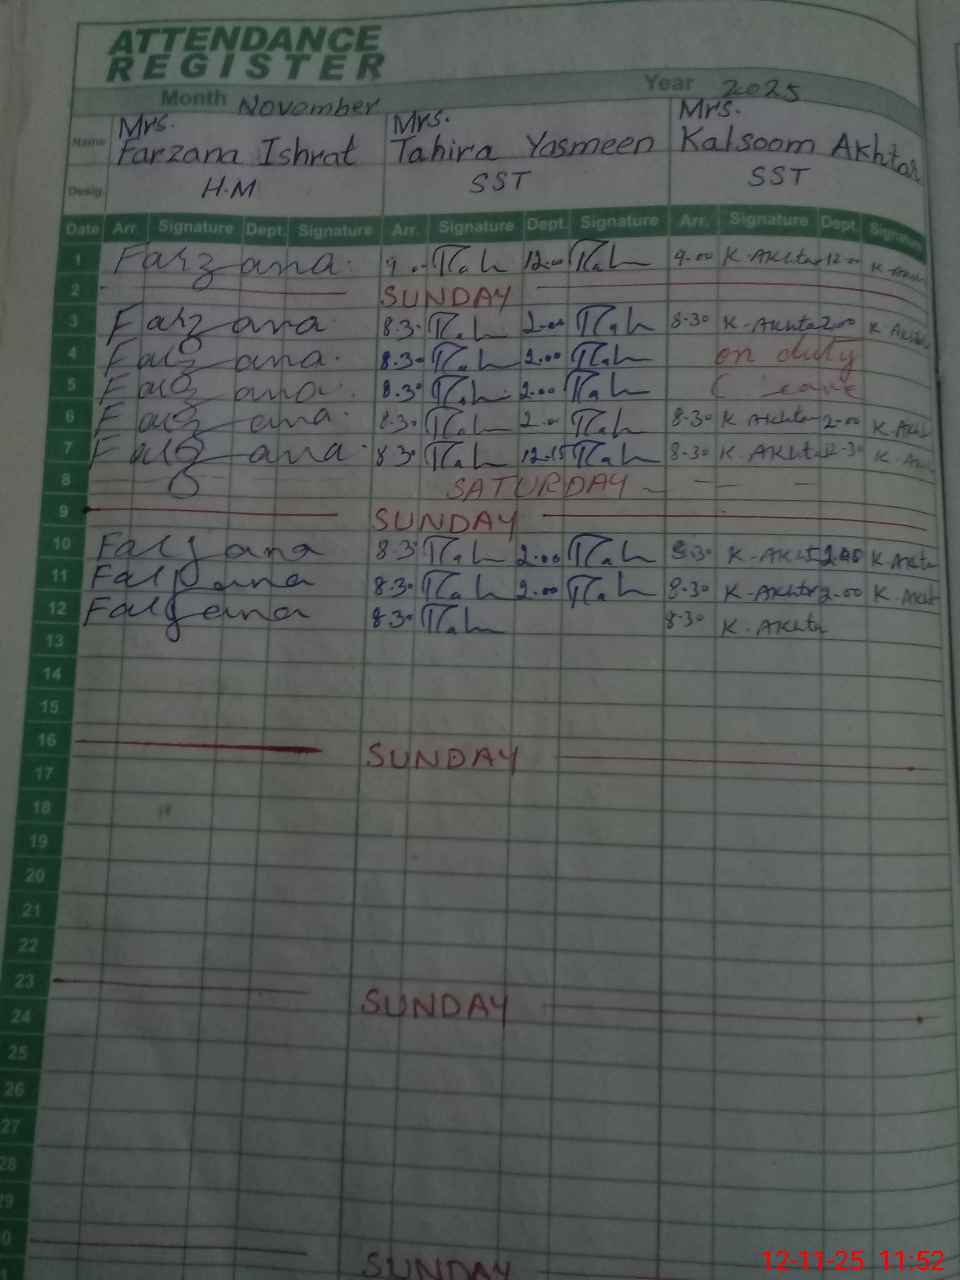 ATTENDANCE
REGISTER
Month November Year 2025
Name Mrs. Farzana Ishrat Mrs. Tahira Yasmeen Mrs. Kalsoom Akhtar
Desig. H.M SST SST
Date Arr. Signature Dept. Signature Arr. Signature Dept. Signature Arr. Signature Dept. Signature
1 Farzana 9.00 12.00 9.00 K. Akhtar 12.00 K. Akhtar
2 SUNDAY
3 Farzana 8.30 2.00 8-30 K. Akhtar 2.00 K Akhtar
4 Farzana 8.30 2.00 on duty
5 Farzana 8.30 2.00 leave
6 Farzana 8.30 2.00 8-30 K Akhtar 2.00 K Akhtar
7 Farzana 8.30 12.15 8-30 K. Akhtar 12-30 K. Akhtar
8 SATURDAY
9 SUNDAY
10 Farzana 8.30 2.00 8.30 K. Akhtar 2.00 K Akhtar
11 Farzana 8.30 2.00 8-30 K. Akhtar 2.00 K. Akhtar
12 Farzana 8.30 8-30 K. Akhtar
13
14
15
16 SUNDAY
17
18
19
20
21
22
23 SUNDAY
24
25
26
27
28
29
30 SUNDAY
12-11-25 11:52